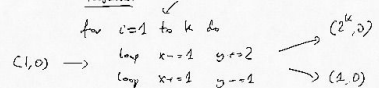 for i=1 to k do
(2^k, 0)
loop x-=1 y+=2
(1,0) →
loop x+=1 y-=1
(1,0)